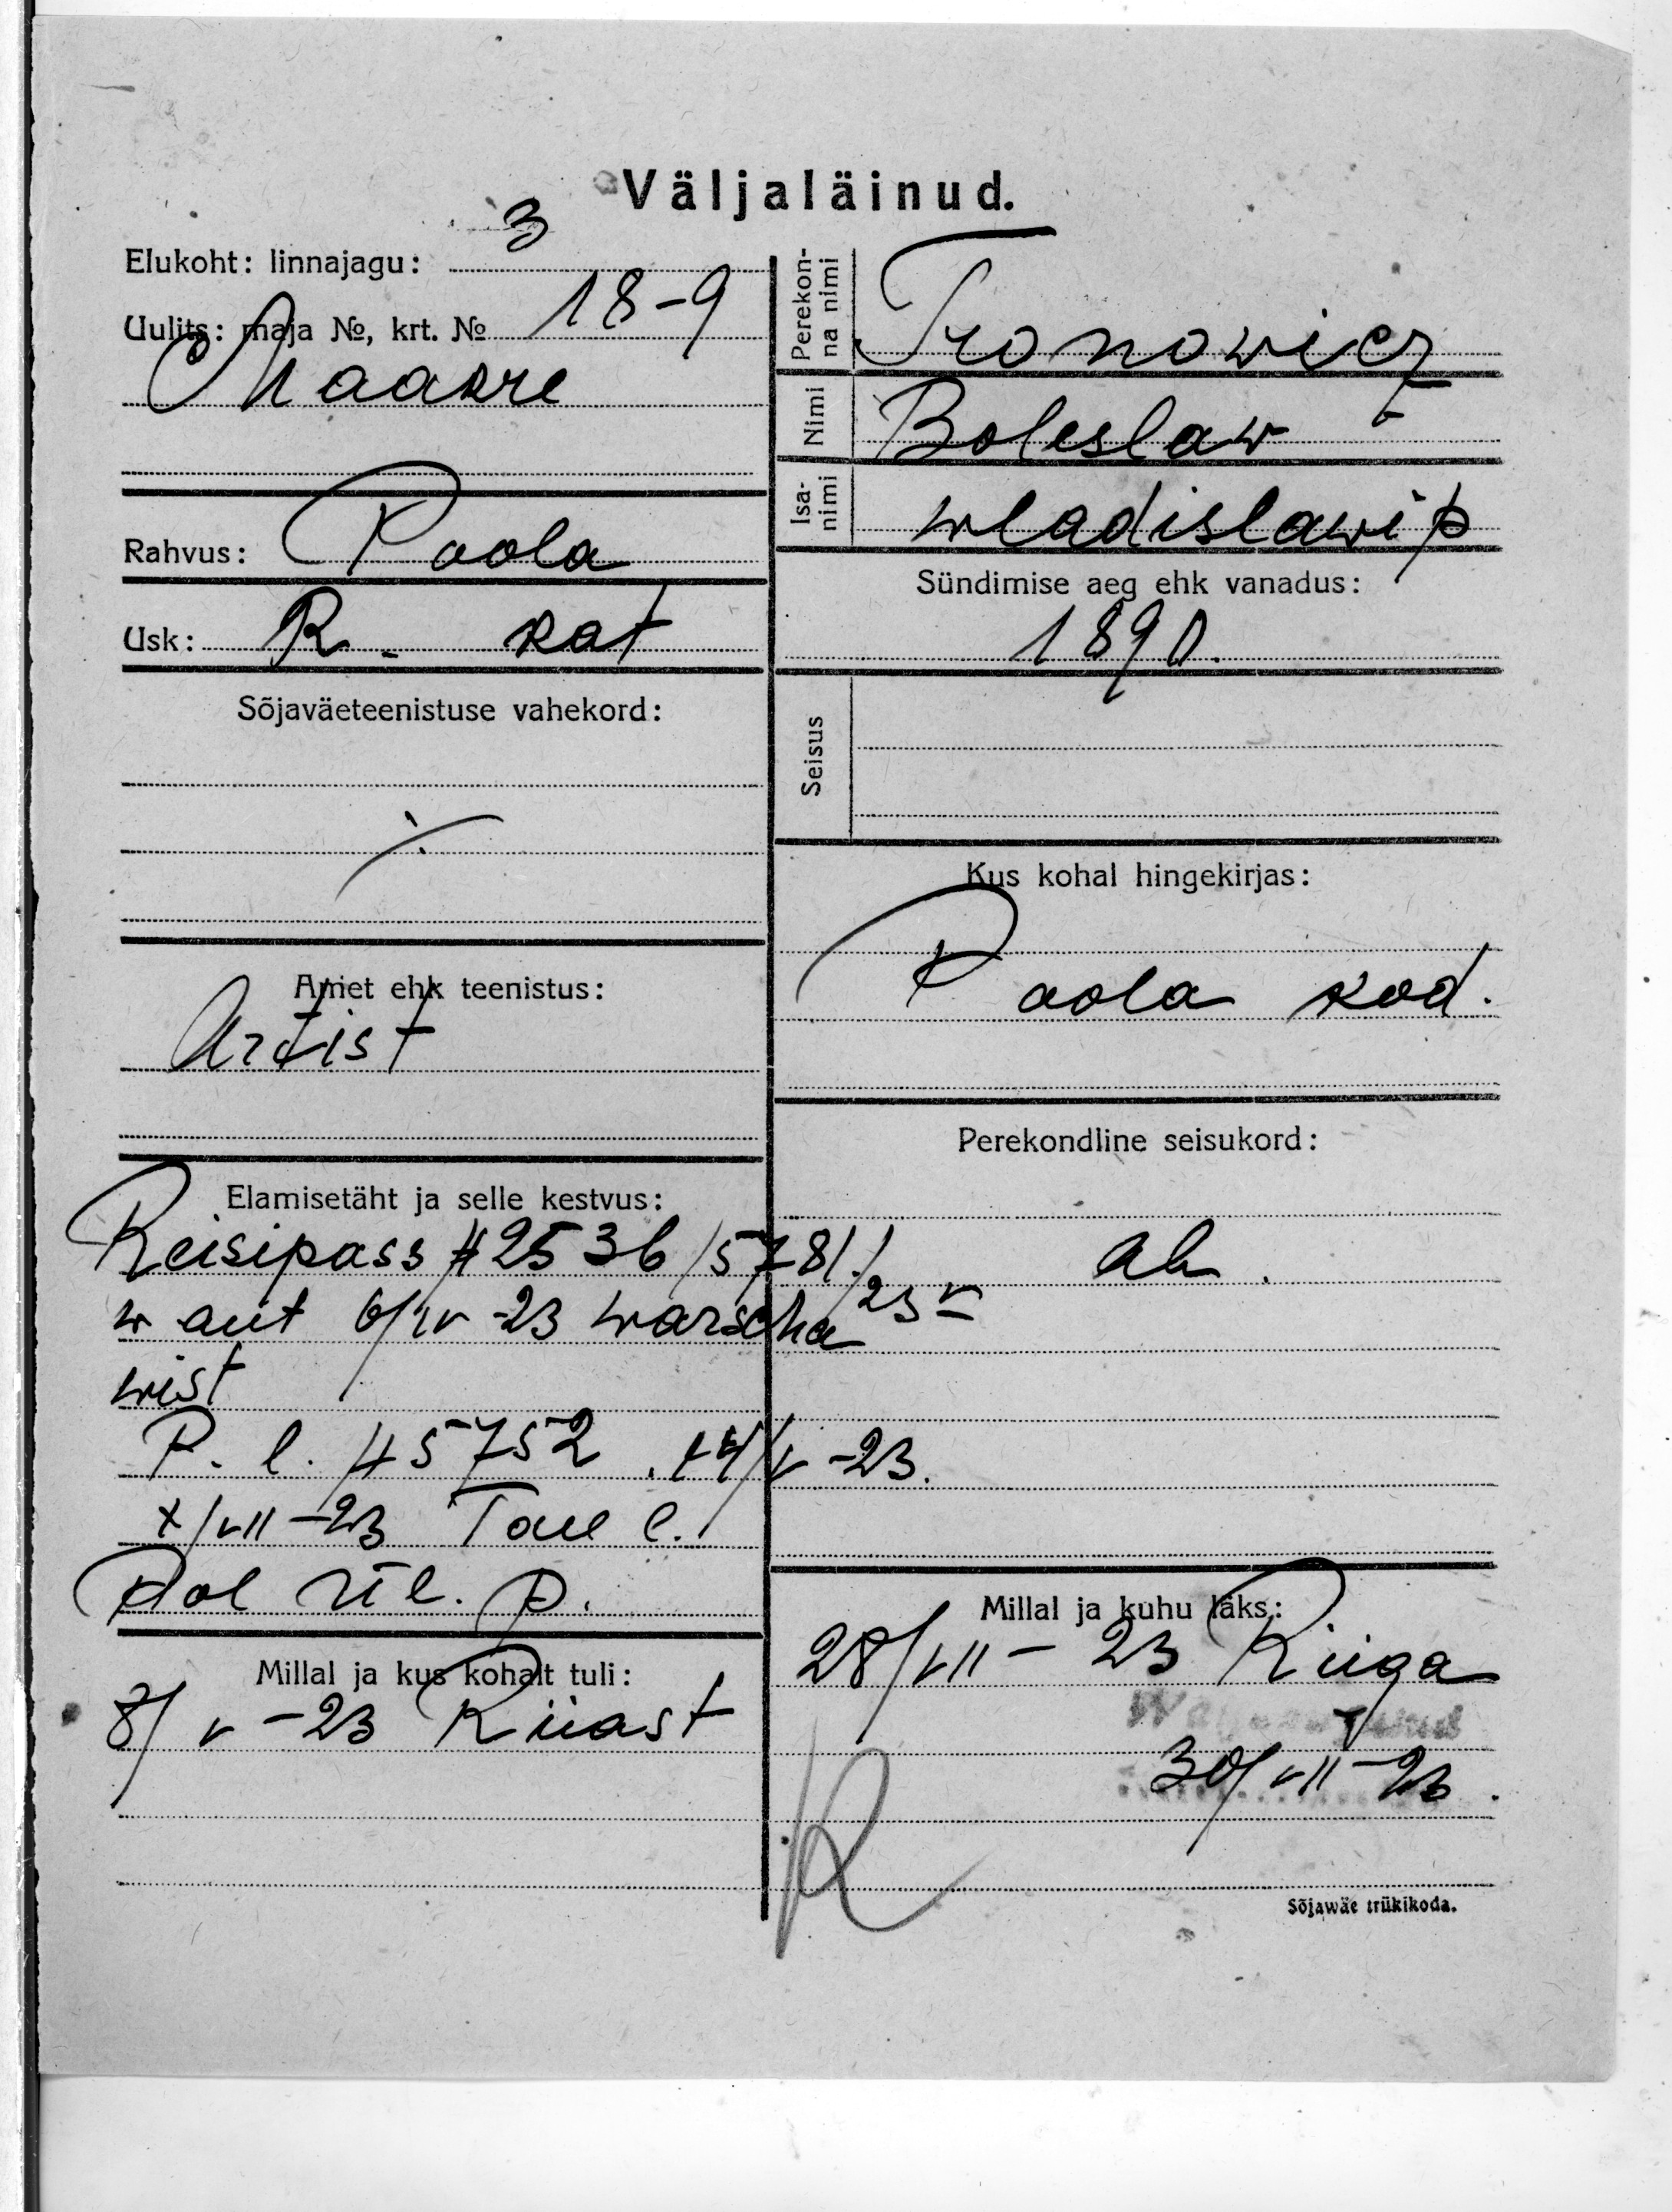 Väljaläinud.
Elukoht: linnajagu: 3
Uulits: maja №, krt. № 18-9
Maakre
Rahvus: Poola
Usk: R. kat
Sõjaväeteenistuse vahekord:
Amet ehk teenistus:
Artist
Elamisetäht ja selle kestvus:
Reisipass # 2536/5781/23 v
w ant 6/IV-23 Warscha
wist
P. l. # 5752. 14/V-23.
X/VII-23 Tall l.
Pol ül. p.
Millal ja kus kohalt tuli:
8/V-23 Riiast
Perekonna nimi
Tronowicz
Nimi
Boleslaw
Isanimi
Wladislawi p
Sündimise aeg ehk vanadus:
1890.
Seisus
Kus kohal hingekirjas:
Poola kod.
Perekondline seisukord:
ab.
Millal ja kuhu läks:
28/VII-23 Riiga
30/VII-23.
Sõjawäe trükikoda.